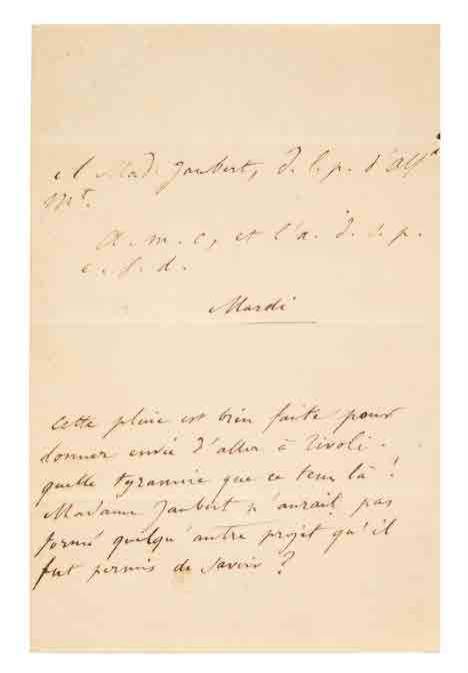 à Mad. Jaubert, d. l. p. d'Alf.d
Mt.
a. m. c, et l'a. d. s. p.
e. s. d.
Mardi
Cette pluie est bien faite pour
donner envie d'aller à Tivoli.
quelle tyrannie que ce tems là !
Madame Jaubert n'aurait pas
formé quelqu'autre projet qu'il
fut permis de savoir ?